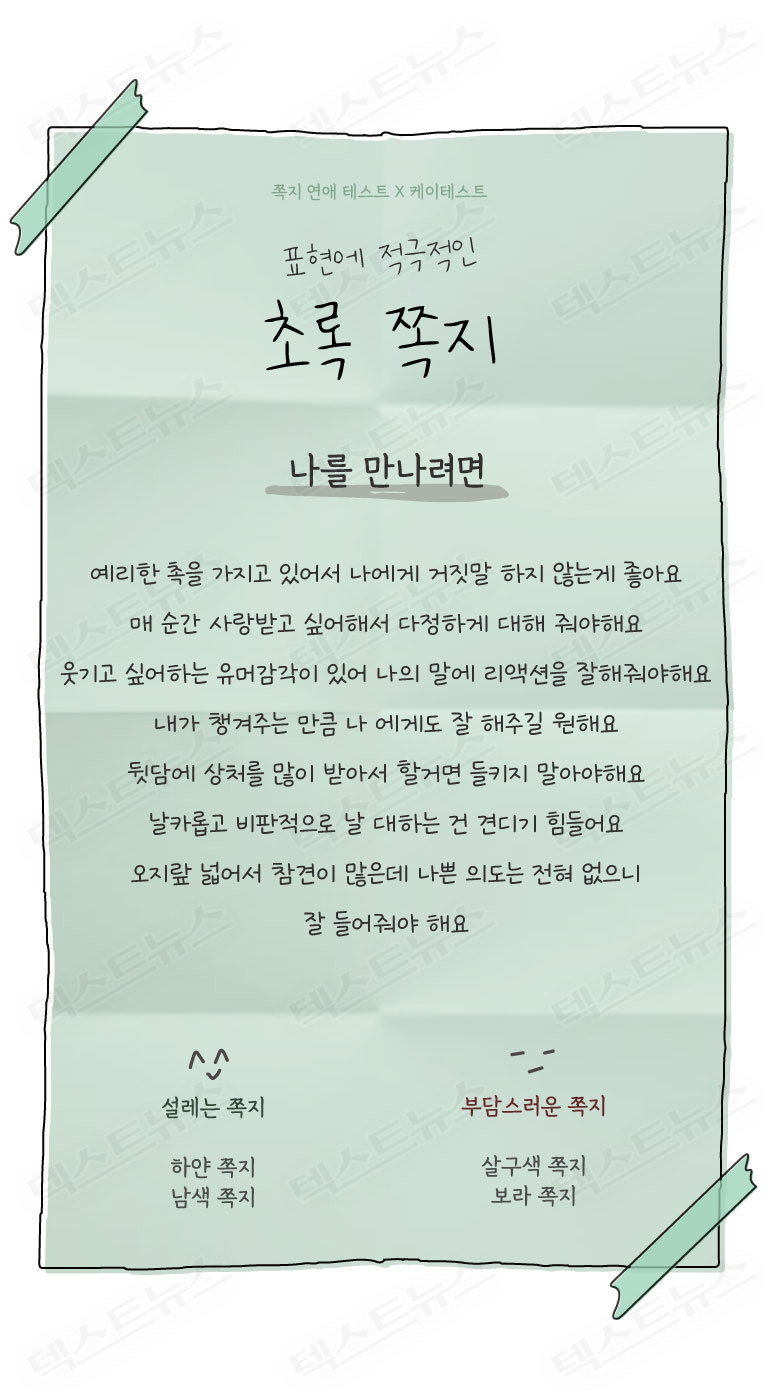 쪽지 연애 테스트 X 케이테스트
표현에 적극적인
초록 쪽지
나를 만나려면
예리한 촉을 가지고 있어서 나에게 거짓말 하지 않는게 좋아요
매 순간 사랑받고 싶어해서 다정하게 대해 줘야해요
웃기고 싶어하는 유머감각이 있어 나의 말에 리액션을 잘해줘야해요
내가 챙겨주는 만큼 나 에게도 잘 해주길 원해요
뒷담에 상처를 많이 받아서 할거면 들키지 말아야해요
날카롭고 비판적으로 날 대하는 건 견디기 힘들어요
오지랖 넓어서 참견이 많은데 나쁜 의도는 전혀 없으니
잘 들어줘야 해요
설레는 쪽지 부담스러운 쪽지
하얀 쪽지 살구색 쪽지
남색 쪽지 보라 쪽지
텍스트뉴스